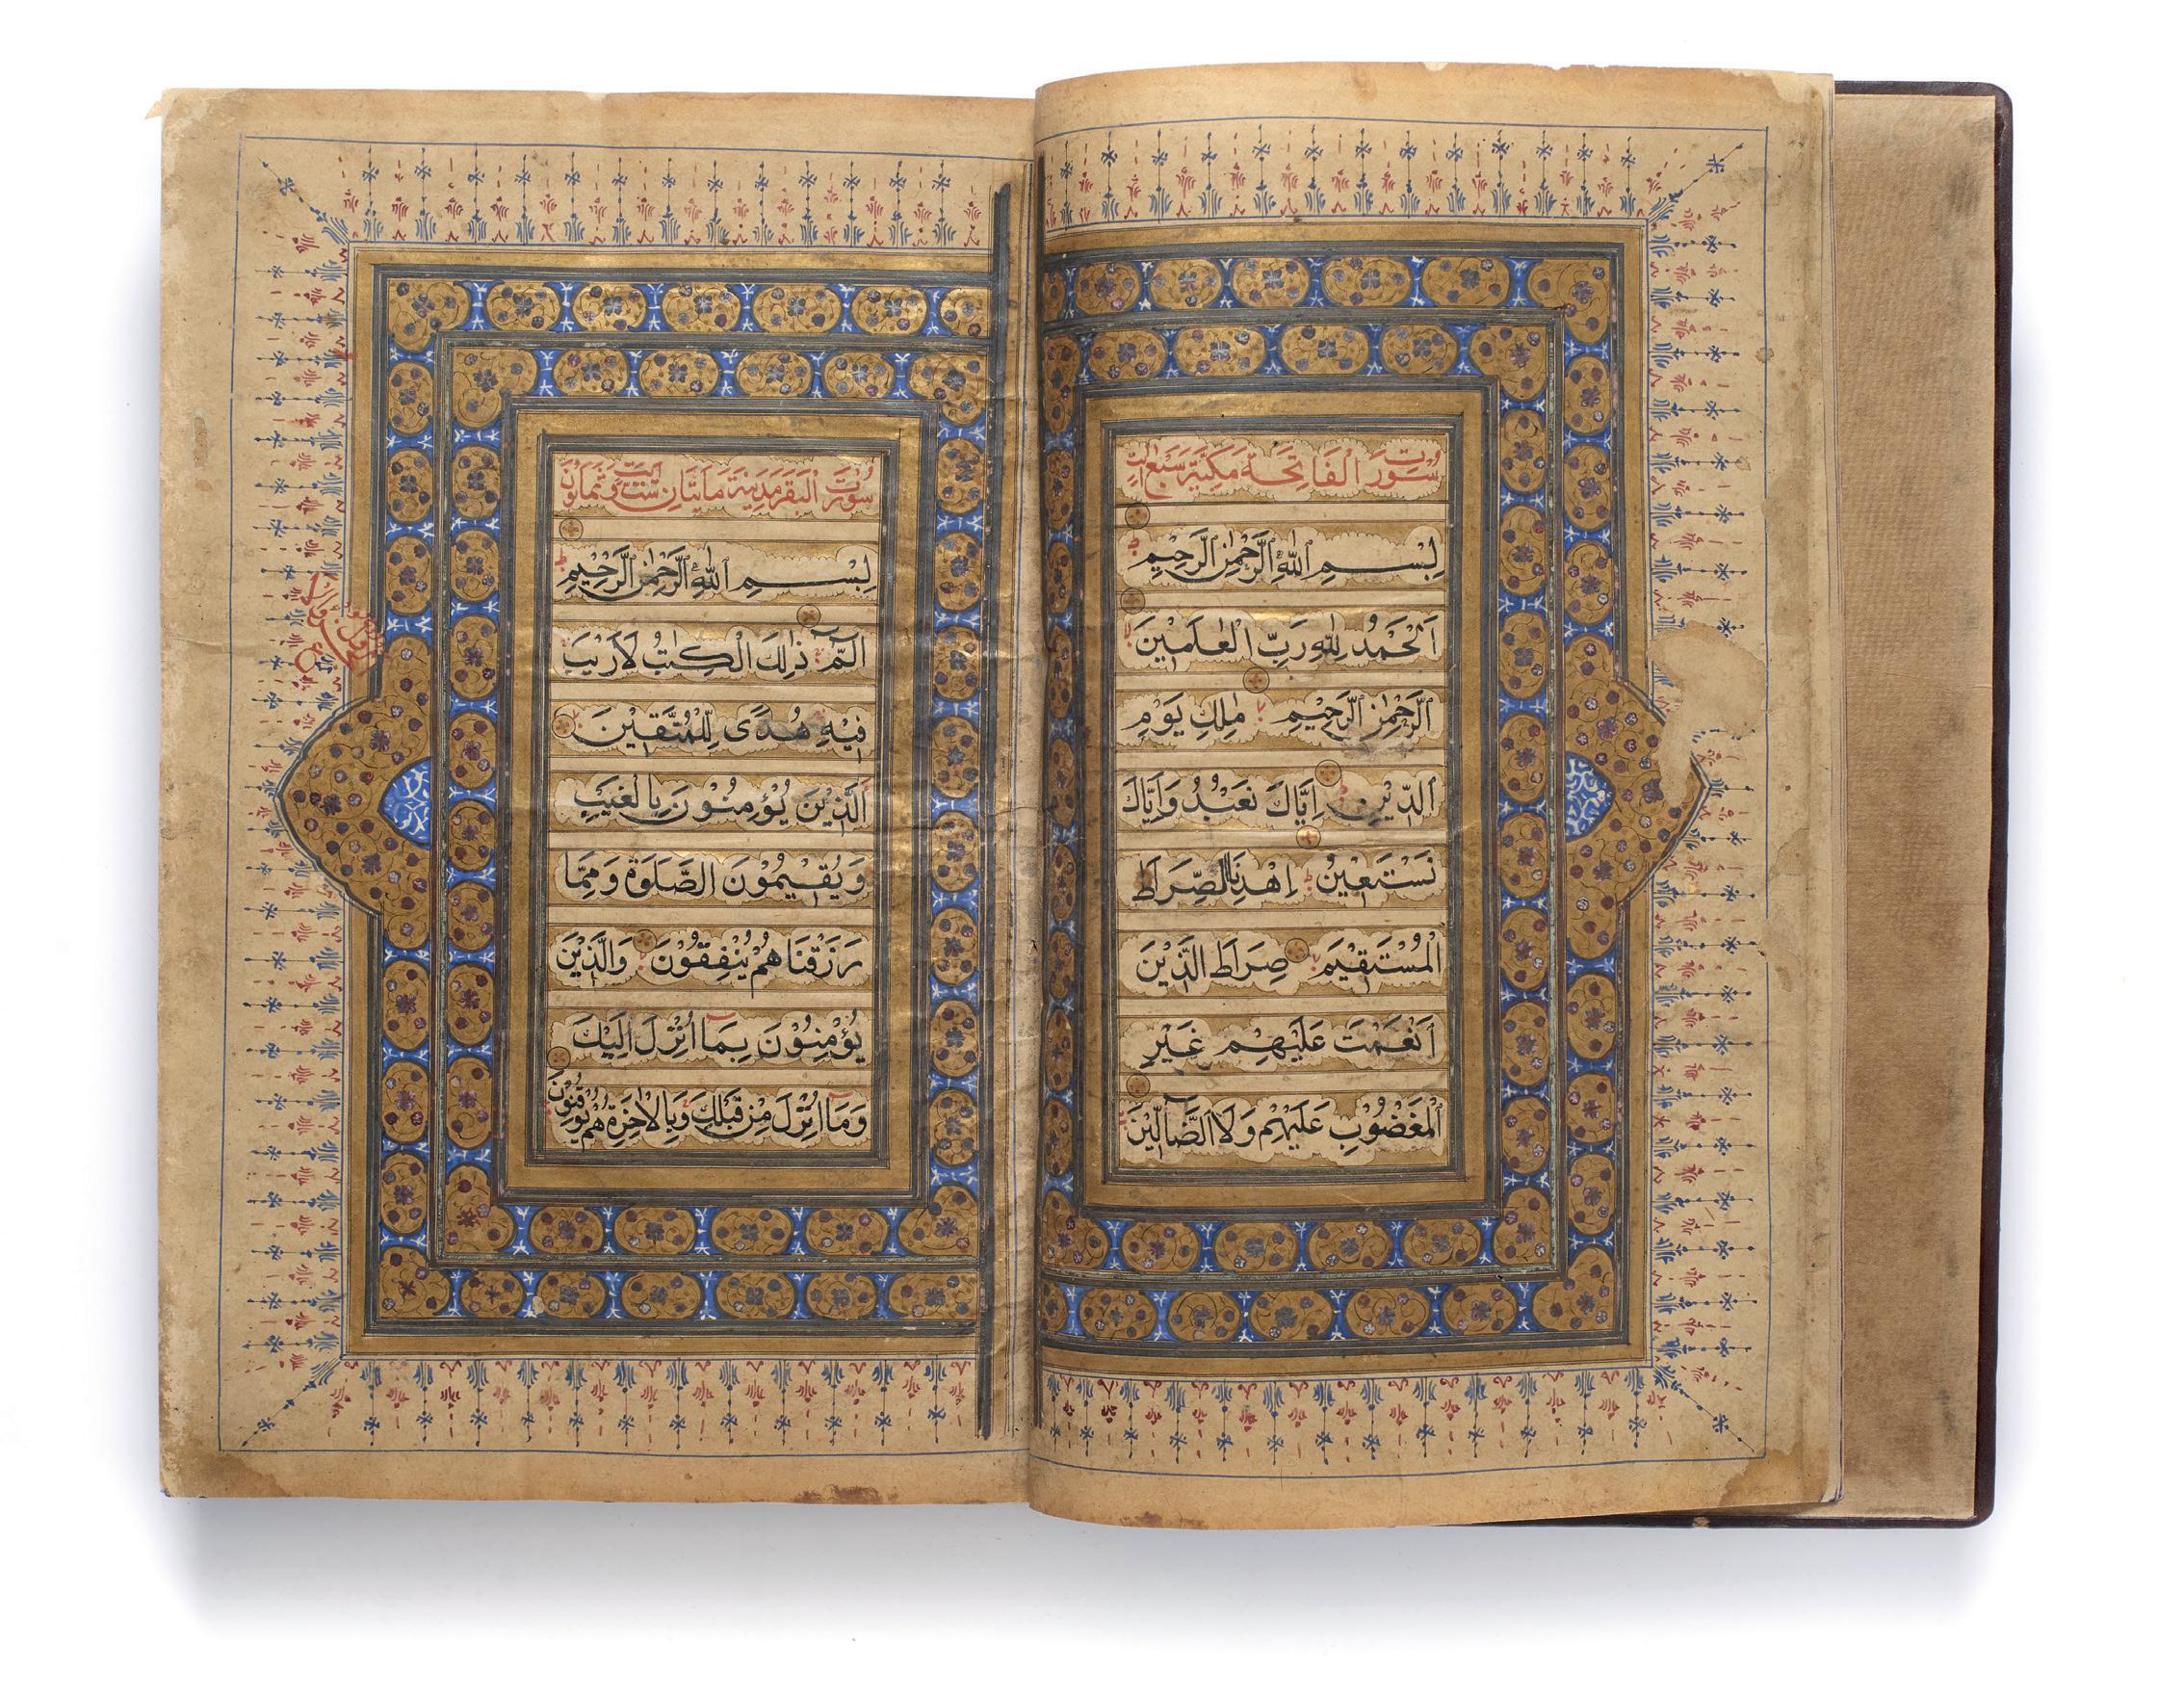 سورت الفاتحة مكية سبع آيات
بِسْمِ اللهِ الرَّحْمٰنِ الرَّحِيْمِ
اَلْحَمْدُ لِلّٰهِ رَبِّ الْعٰلَمِيْنَ
الرَّحْمٰنِ الرَّحِيْمِ مٰلِكِ يَوْمِ
الدِّيْنِ اِيَّاكَ نَعْبُدُ وَاِيَّاكَ
نَسْتَعِيْنُ اِهْدِنَا الصِّرَاطَ
الْمُسْتَقِيْمَ صِرَاطَ الَّذِيْنَ
اَنْعَمْتَ عَلَيْهِمْ غَيْرِ
الْمَغْضُوْبِ عَلَيْهِمْ وَلَا الضَّآلِّيْنَ
سورت البقر مدينة مائتان ست وثمانون آيت
بِسْمِ اللهِ الرَّحْمٰنِ الرَّحِيْمِ
الٓمّٓ ذٰلِكَ الْكِتٰبُ لَا رَيْبَ
فِيْهِ هُدًى لِّلْمُتَّقِيْنَ
الَّذِيْنَ يُؤْمِنُوْنَ بِالْغَيْبِ
وَيُقِيْمُوْنَ الصَّلَوةَ وَمِمَّا
رَزَقْنَاهُمْ يُنْفِقُوْنَ وَالَّذِيْنَ
يُؤْمِنُوْنَ بِمَآ اُنْزِلَ اِلَيْكَ
وَمَآ اُنْزِلَ مِنْ قَبْلِكَ وَبِالْاٰخِرَةِ هُمْ يُوْقِنُوْنَ